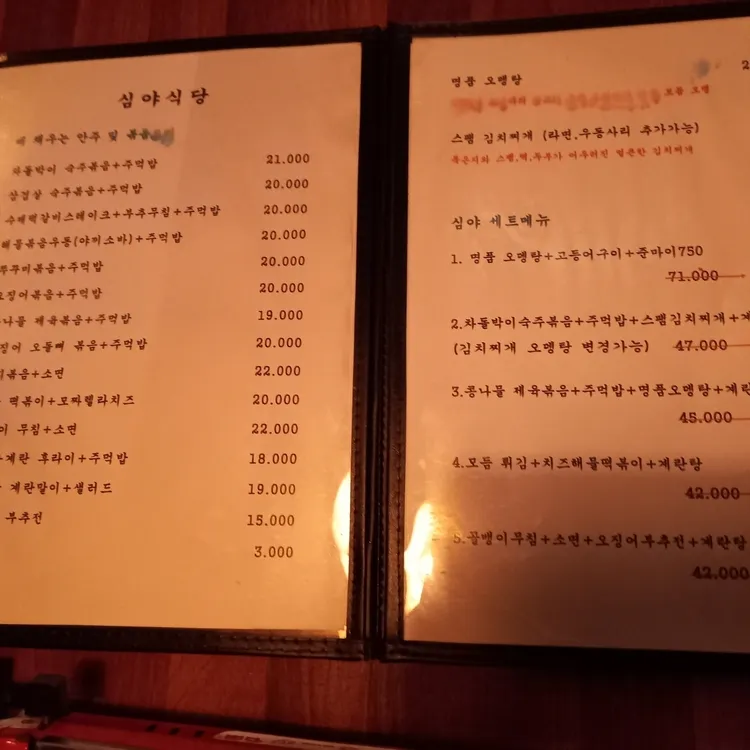 심야식당
배 채우는 안주 및
차돌박이 숙주볶음+주먹밥 21.000
삼겹살 숙주볶음+주먹밥 20.000
수제떡갈비스테이크+부추무침+주먹밥 20.000
해물볶음우동(야끼소바)+주먹밥 20.000
쭈꾸미볶음+주먹밥 20.000
오징어볶음+주먹밥 20.000
콩나물 제육볶음+주먹밥 19.000
오돌뼈 볶음+주먹밥 20.000
+소면 22.000
떡볶이+모짜렐라치즈 20.000
무침+소면 22.000
계란 후라이+주먹밥 18.000
계란말이+샐러드 19.000
부추전 15.000
3.000
명품 오뎅탕 2
모듬 오뎅
스팸 김치찌개 (라면,우동사리 추가가능)
묵은지와 스팸,떡,두부가 어우러진 얼큰한 김치찌개
심야 세트메뉴
1. 명품 오뎅탕+고등어구이+준마이750
71.000
2.차돌박이숙주볶음+주먹밥+스팸김치찌개+계
(김치찌개 오뎅탕 변경가능) 47.000
3.콩나물 제육볶음+주먹밥+명품오뎅탕+계란
45.000
4.모듬 튀김+치즈해물떡볶이+계란탕
42.000
5.골뱅이무침+소면+오징어부추전+계란탕
42.000